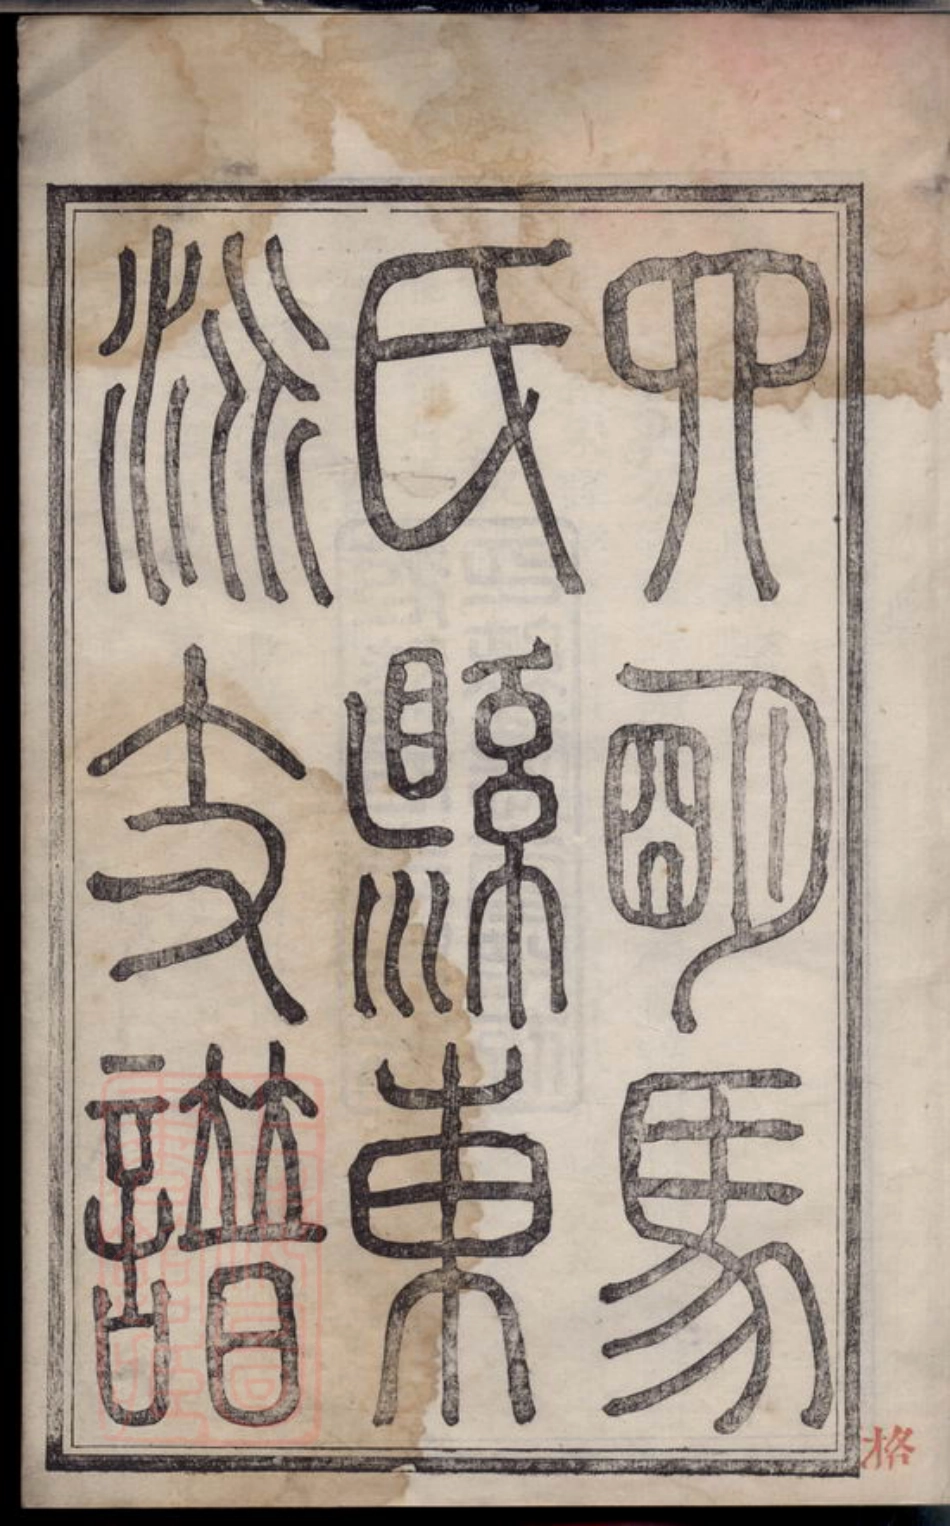 四明馬
氏縣東
派支譜
格